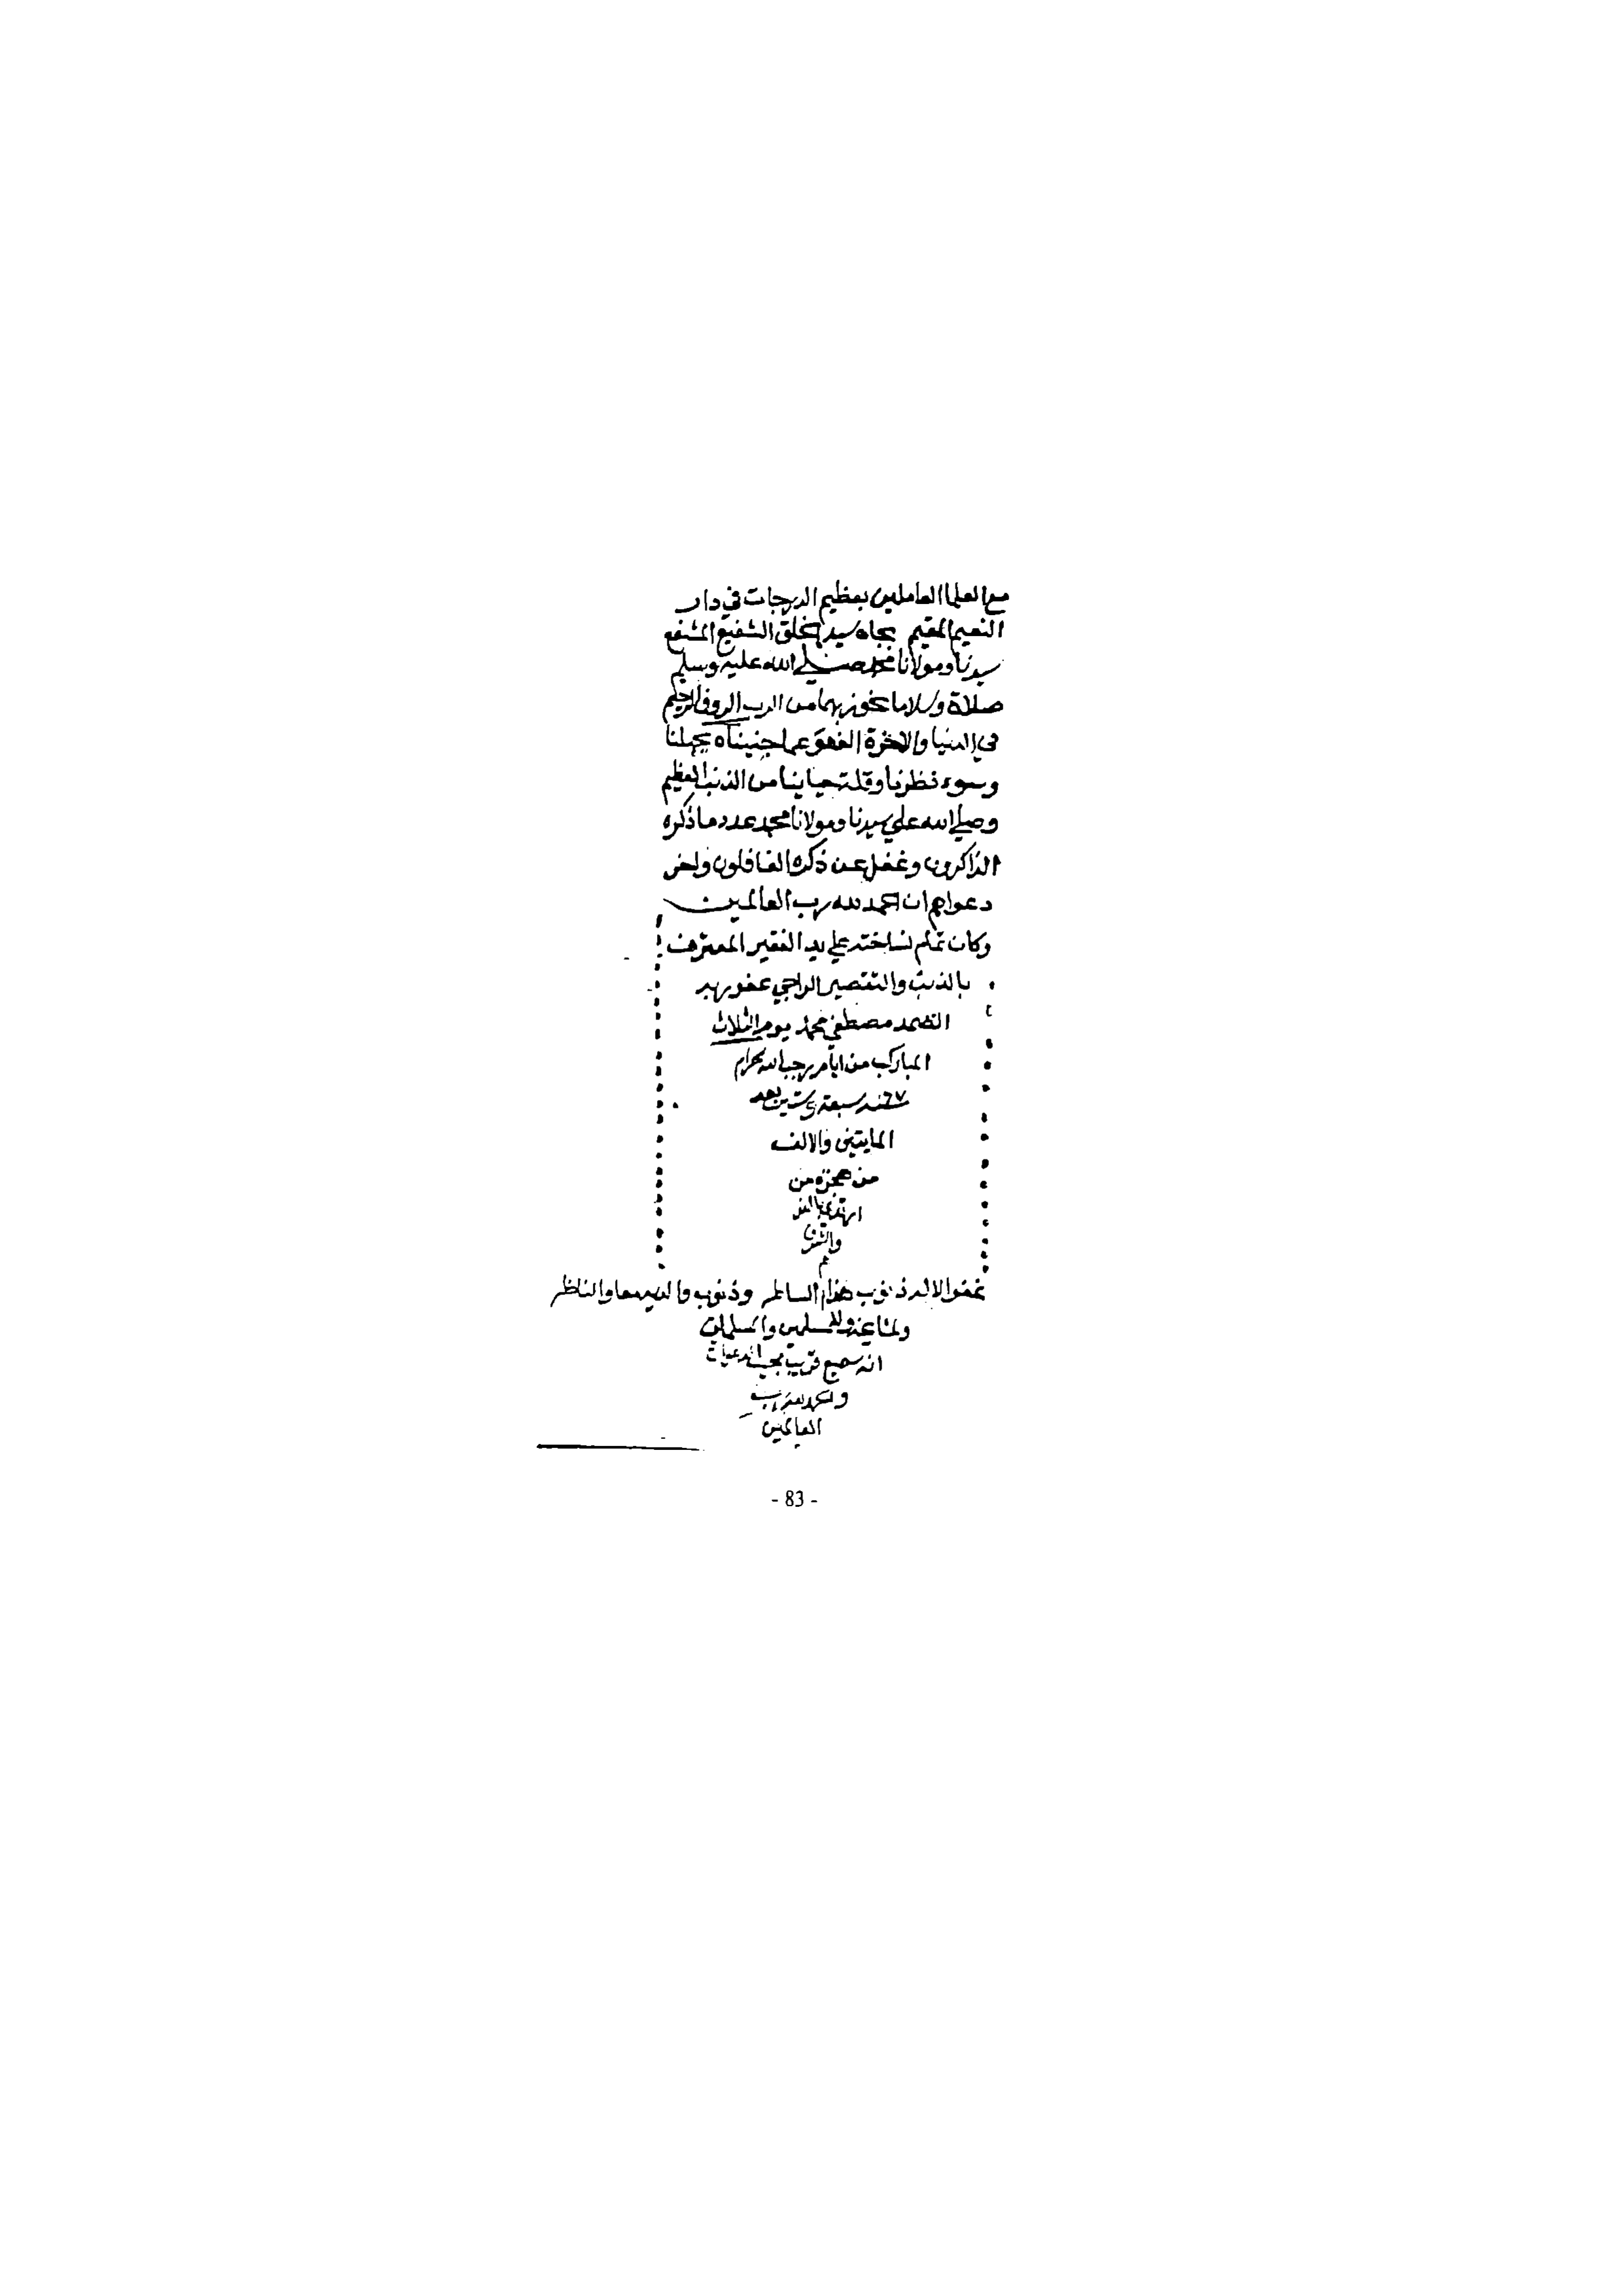 مع العلما العاملين بعظيم الدرجات في دار
النعيم المقيم بجاه سيد الخلق الشفيع المشفع
سيدنا ومولانا محمد صلي الله عليه وسلم
صلاة وسلاما نفوز بهما من الرب الروف الرحيم
في الدنيا والاخرة العفو عما جنيناه بجهلنا
وسوء نظرنا وقلت حيا ينا من الذنب العظيم
وصلي الله علي سيدنا ومولانا محمد عدد ما ذكره
الذاكرون وغفل عن ذكره الغافلون واخر
دعواهم ان الحمد لله رب العالمين
وكان تمام نساخته علي يد الفقير المعترف
بالذنب والتقصير الراجي عفو ربه
الصمد مصطفي محمد يوم الثلاث
المبارك من ايام رجب الله الحرام
سنة ٦٧ سبعة وستين بعد
المايتين والالف
من هجرة من
ارتدي بالعز
والشرف
م
غفر الاله ذنوب هذا الساطر وذنوب والديه معا والناظر
وللمسلمين والمسلمات
انه سميع قريب مجيب الدعوات
والحمد لله رب
العالمين
- 83 -